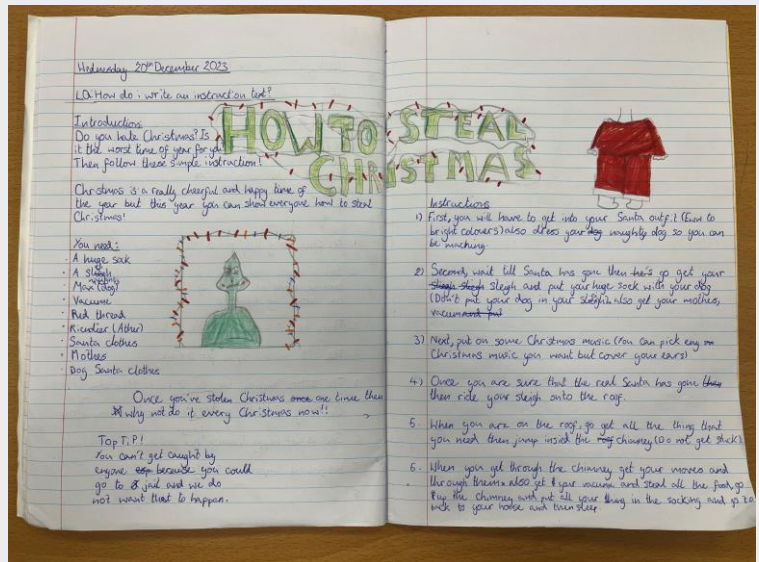 Wednesday 20th December 2023
LO: How do i write an instruction text?
HOW TO STEAL
CHRISTMAS
Introduction
Do you hate Christmas? Is
it the worst time of year for you
Then follow these simple instruction!
Christmas is a really cheerful and happy time of
the year but this year you can show everyone how to steal
Christmas!
You need:
A huge sock
A sleigh
Max (dog)
Vacume
Red thread
(Ather)
Santa clothes
Mothes
Dog Santa clothes
Once you've stolen Christmas one time then
why not do it every Christmas now!!
Top TiP!
You can't get caught by
enyone because you could
go to jail and we do
not want that to happen.
Instructions
1) First, you will have to get into your Santa outfit (Even to
bright colours) also dress your dog noughty dog so you can
be maching.
2) Second, wait till Santa has gone then he's go get your
sleigh and put your huge sock with your dog
(Didn't put your dog in your sleigh) also get your mothes,
vacum and put
3) Next, put on some Christmas music (You can pick eny on
Christmas music you want but cover your ears)
4) Once you are sure that the real Santa has gone then
then ride your sleigh onto the roof.
5. When you are on the roof, go get all the thing that
you need then jump insied the roof chimney (Do not get stuck).
6. When you get through the chimney get your moves and
through them also get your vacume and steal all the food, go
up the chimney and put all your thing in the socking and go
back to your house and then sleep.